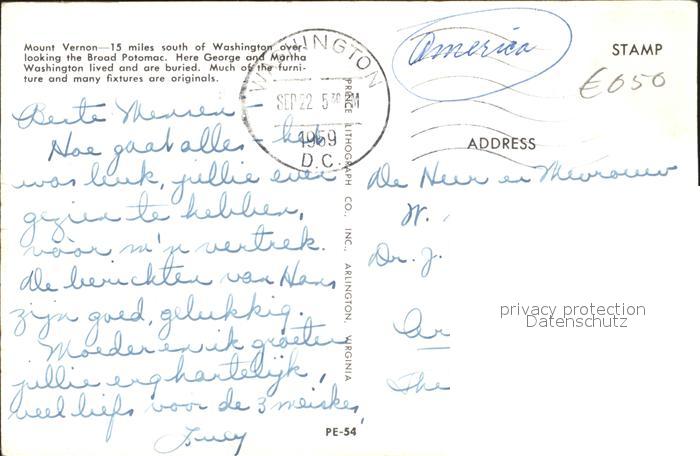 Mount Vernon—15 miles south of Washington over-
looking the Broad Potomac. Here George and Martha
Washington lived and are buried. Much of the furni-
ture and many fixtures are originals.
Beste Mensen –
Hoe gaat alles – het
was leuk, jullie even
gezien te hebben,
vóór m'n vertrek.
De berichten van Hans
zijn goed, gelukkig.
Moeder en ik groeten
jullie erg hartelijk,
veel liefs voor de 3 meiskes,
WASHINGTON
SEP 22 5 30 PM
1969
D.C.
PRINCE LITHOGRAPH CO., INC. ARLINGTON, VIRGINIA
PE-54
America
STAMP
€050
ADDRESS
De Heer en Mevrouw
W.
Dr. J.
The
privacy protection
Datenschutz